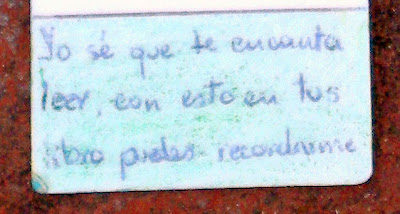 Yo sé que te encanta
leer, con esto en tus
libro puedes recordarme